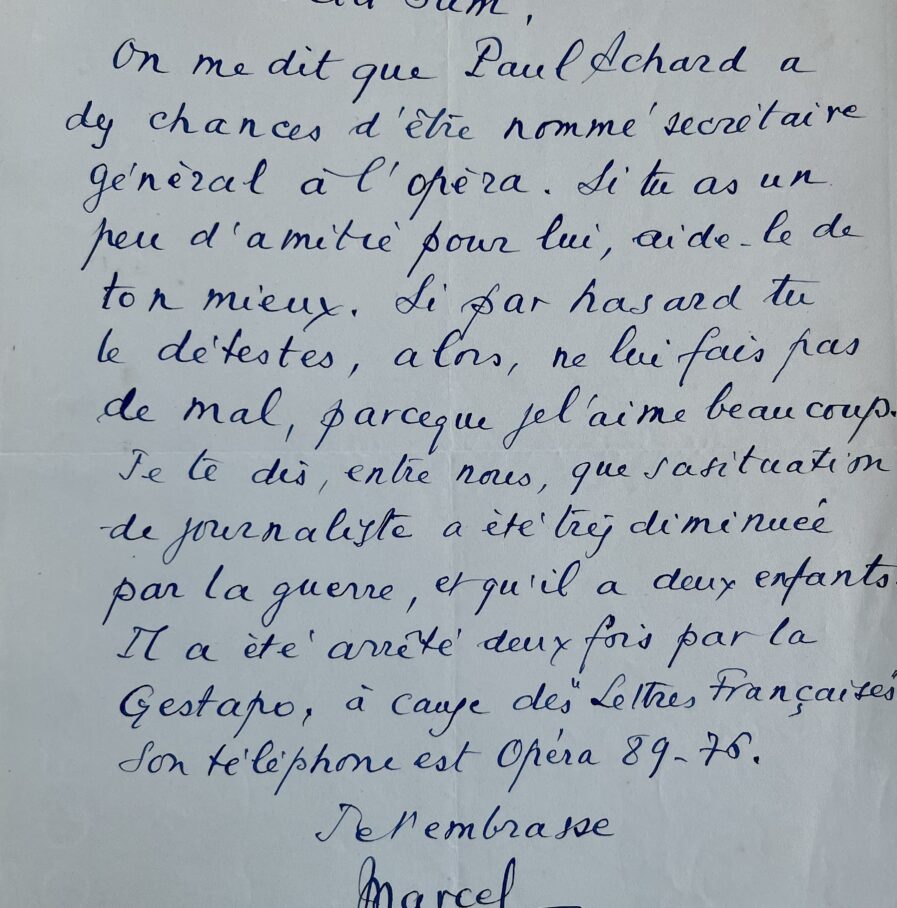 On me dit que Paul Achard a
des chances d'être nommé secrétaire
général à l'opèra. Si tu as un
peu d'amitié pour lui, aide-le de
ton mieux. Si par hasard tu
le détestes, alors, ne lui fais pas
de mal, parceque je l'aime beaucoup.
Je te dis, entre nous, que sa situation
de journaliste a été très diminuée
par la guerre, et qu'il a deux enfants.
Il a été arrêté deux fois par la
Gestapo, à cause des "Lettres Françaises"
Son téléphone est Opéra 89-76.
Je t'embrasse
Marcel